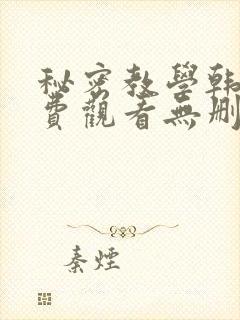 秘密教學韓
費觀看無刪
秦煙